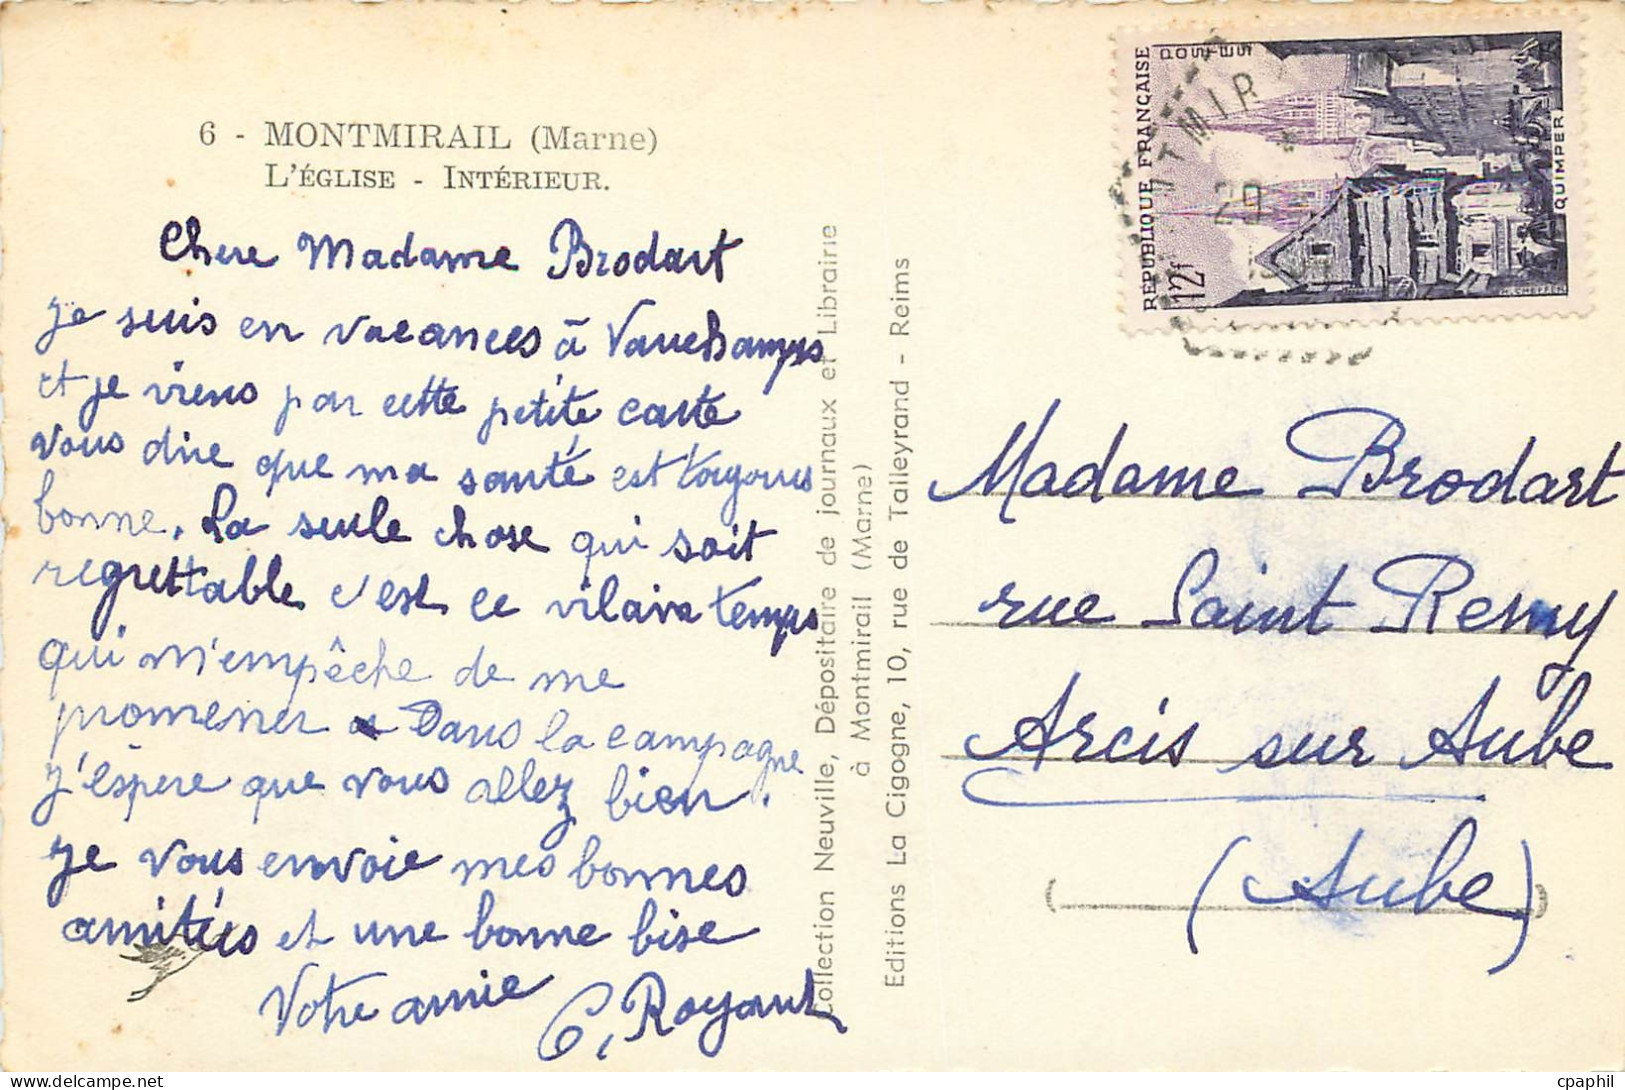 6 - MONTMIRAIL (Marne)
L'ÉGLISE - INTÉRIEUR.
Chere Madame Brodart
je suis en vacances à Vauchamps
et je viens par cette petite carte
vous dire que ma santé est toujours
bonne. La seule chose qui soit
regrettable c'est ce vilain temps
qui m'empêche de me
promener Dans la campagne
j'éspere que vous allez bien.
je vous envoie mes bonnes
amitiés et une bonne bise
Votre amie C, Royant
Collection Neuville, Dépositaire de journaux et Librairie
à Montmirail (Marne)
Editions La Cigogne, 10, rue de Talleyrand - Reims
RÉPUBLIQUE FRANÇAISE
POSTES
12f
QUIMPER
H. CHEFFER
MIR
Madame Brodart
rue Saint Remy
Arcis sur Aube
(Aube)
cpaphil